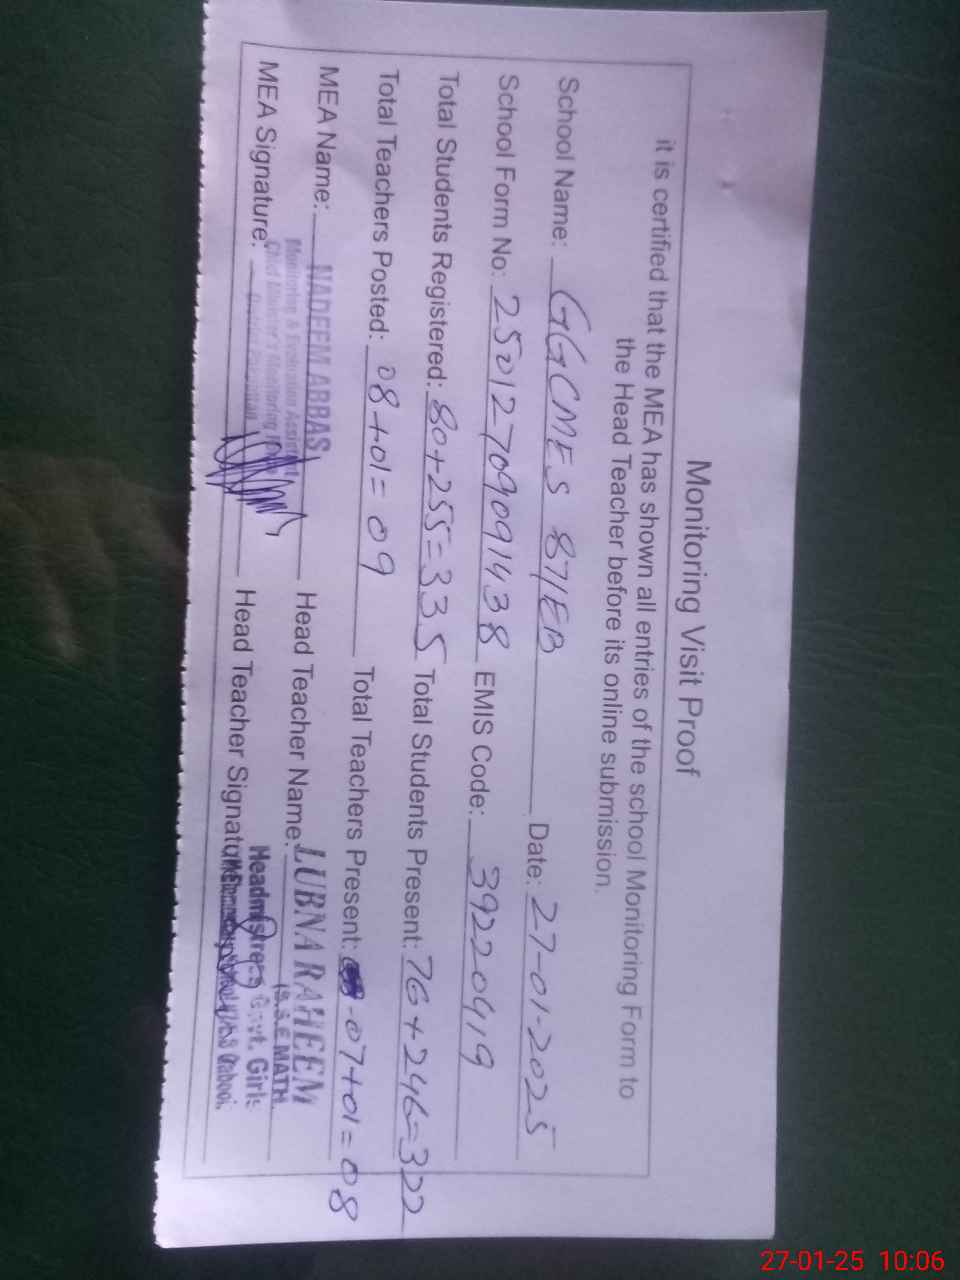 Monitoring Visit Proof
it is certified that the MEA has shown all entries of the school Monitoring Form to
the Head Teacher before its online submission.
School Name: GGCMES 87/EB Date: 27-01-2025
School Form No: 25012709091438 EMIS Code: 39220919
Total Students Registered: 80+255=335 Total Students Present: 76+246=322
Total Teachers Posted: 08+01=09 Total Teachers Present: -07+01=08
MEA Name: NADEEM ABBAS Head Teacher Name: LUBNA RAHEEM
Monitoring & Evaluation Assistant (S.S.E MATH)
Chief Minister's Monitoring Force Headmistress Govt. Girls
MEA Signature: District Pakpattan Head Teacher Signature
27-01-25 10:06